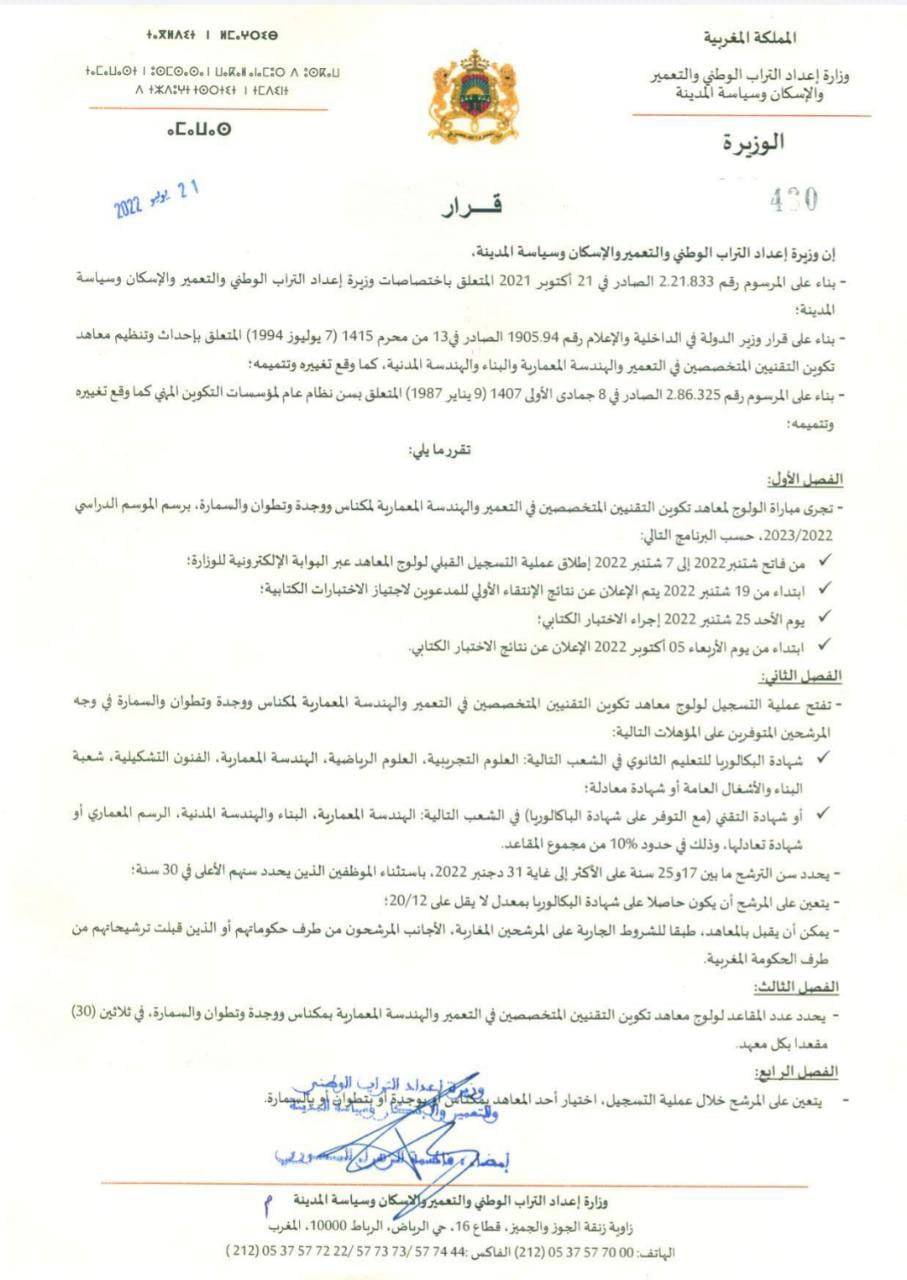 المملكة المغربية
وزارة إعداد التراب الوطني والتعمير
والإسكان وسياسة المدينة
الوزيرة
ⵜⴰⴳⵍⴷⵉⵜ ⵏ ⵍⵎⴰⵖⵔⵉⴱ
ⵜⴰⵎⴰⵡⴰⵙⵜ ⵏ ⵓⵙⵎⵙⴰⵙⴰ ⵏ ⵡⴰⴽⴰⵍ ⴰⵏⴰⵎⵓⵔ ⴷ ⵓⵙⴽⴰⵡ
ⴷ ⵜⵣⴷⵓⵖⵜ ⵜⵙⵔⵜⵉⵜ ⵏ ⵜⵎⴷⵉⵏⵜ
ⴰⵎⴰⵡⴰⵙ
21 يوليو 2022
قـــرار
إن وزيرة إعداد التراب الوطني والتعمير والإسكان وسياسة المدينة،
- بناء على المرسوم رقم 2.21.833 الصادر في 21 أكتوبر 2021 المتعلق باختصاصات وزيرة إعداد التراب الوطني والتعمير والإسكان وسياسة
المدينة؛
- بناء على قرار وزير الدولة في الداخلية والإعلام رقم 1905.94 الصادر في13 من محرم 1415 (7 يوليوز 1994) المتعلق بإحداث وتنظيم معاهد
تكوين التقنيين المتخصصين في التعمير والهندسة المعمارية والبناء والهندسة المدنية، كما وقع تغييره وتتميمه؛
- بناء على المرسوم رقم 2.86.325 الصادر في 8 جمادى الأولى 1407 (9 يناير 1987) المتعلق بسن نظام عام لمؤسسات التكوين المهني كما وقع تغييره
وتتميمه؛
تقرر ما يلي:
الفصل الأول:
- تجرى مباراة الولوج لمعاهد تكوين التقنيين المتخصصين في التعمير والهندسة المعمارية لمكناس ووجدة وتطوان والسمارة، برسم الموسم الدراسي
2023/2022، حسب البرنامج التالي:
✓ من فاتح شتنبر2022 إلى 7 شتنبر 2022 إطلاق عملية التسجيل القبلي لولوج المعاهد عبر البوابة الإلكترونية للوزارة؛
✓ ابتداء من 19 شتنبر 2022 يتم الإعلان عن نتائج الإنتقاء الأولي للمدعوين لاجتياز الاختبارات الكتابية؛
✓ يوم الأحد 25 شتنبر 2022 إجراء الاختبار الكتابي؛
✓ ابتداء من يوم الأربعاء 05 أكتوبر 2022 الإعلان عن نتائج الاختبار الكتابي.
الفصل الثاني:
- تفتح عملية التسجيل لولوج معاهد تكوين التقنيين المتخصصين في التعمير والهندسة المعمارية لمكناس ووجدة وتطوان والسمارة في وجه
المرشحين المتوفرين على المؤهلات التالية:
✓ شهادة البكالوريا للتعليم الثانوي في الشعب التالية: العلوم التجريبية، العلوم الرياضية، الهندسة المعمارية، الفنون التشكيلية، شعبة
البناء والأشغال العامة أو شهادة معادلة؛
✓ أو شهادة التقني (مع التوفر على شهادة الباكالوريا) في الشعب التالية: الهندسة المعمارية، البناء والهندسة المدنية، الرسم المعماري أو
شهادة تعادلها، وذلك في حدود 10% من مجموع المقاعد.
- يحدد سن الترشح ما بين 17و25 سنة على الأكثر إلى غاية 31 دجنبر 2022، باستثناء الموظفين الذين يحدد سنهم الأعلى في 30 سنة؛
- يتعين على المرشح أن يكون حاصلا على شهادة البكالوريا بمعدل لا يقل على 20/12؛
- يمكن أن يقبل بالمعاهد، طبقا للشروط الجارية على المرشحين المغاربة، الأجانب المرشحون من طرف حكوماتهم أو الذين قبلت ترشيحاتهم من
طرف الحكومة المغربية.
الفصل الثالث:
- يحدد عدد المقاعد لولوج معاهد تكوين التقنيين المتخصصين في التعمير والهندسة المعمارية بمكناس ووجدة وتطوان والسمارة، في ثلاثين (30)
مقعدا بكل معهد.
الفصل الرابع:
- يتعين على المرشح خلال عملية التسجيل، اختيار أحد المعاهد بمكناس أو بوجدة أو بتطوان أو بالسمارة.
وزيرة إعداد التراب الوطني
والتعمير والإسكان وسياسة المدينة
إمضاء: فاطمة الزهراء المنصوري
وزارة إعداد التراب الوطني والتعمير والإسكان وسياسة المدينة
زاوية زنقة الجوز والجميز، قطاع 16، حي الرياض، الرباط 10000، المغرب
الهاتف: 00 70 57 37 05 (212) الفاكس :44 74 57 /73 73 57 /22 72 57 37 05 (212)